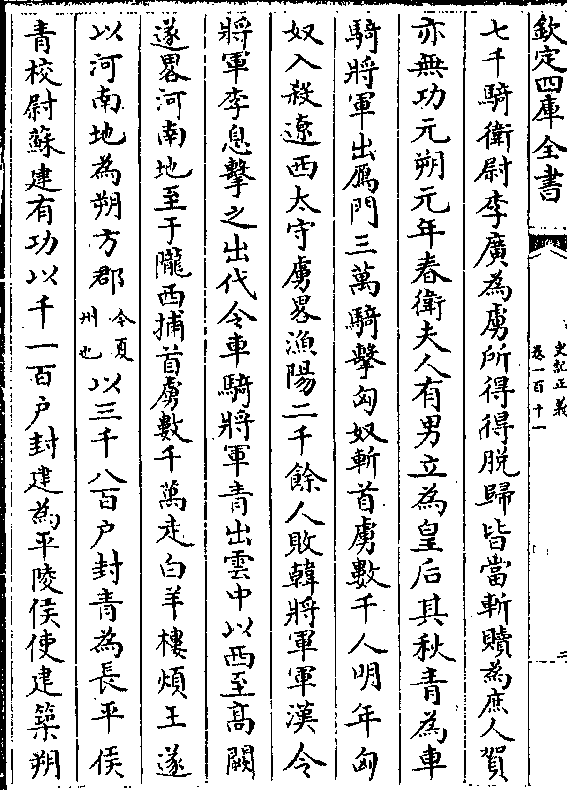 欽定四庫全書
史記正義
卷一百十一
三
七千騎衛尉李廣為虜所得得脫歸皆當斬贖為庶人賀
亦無功元朔元年春衛夫人有男立為皇后其秋青為車
騎將軍出鴈門三萬騎擊匈奴斬首虜數千人明年匈
奴入殺遼西太守虜畧漁陽二千餘人敗韓將軍軍漢令
將軍李息擊之出代令車騎將軍青出雲中以西至高闕
遂畧河南地至于隴西捕首虜數千萬走白羊樓煩王遂
以河南地為朔方郡今夏州也以三千八百戶封青為長平侯
青校尉蘇建有功以千一百戶封建為平陵侯使建築朔